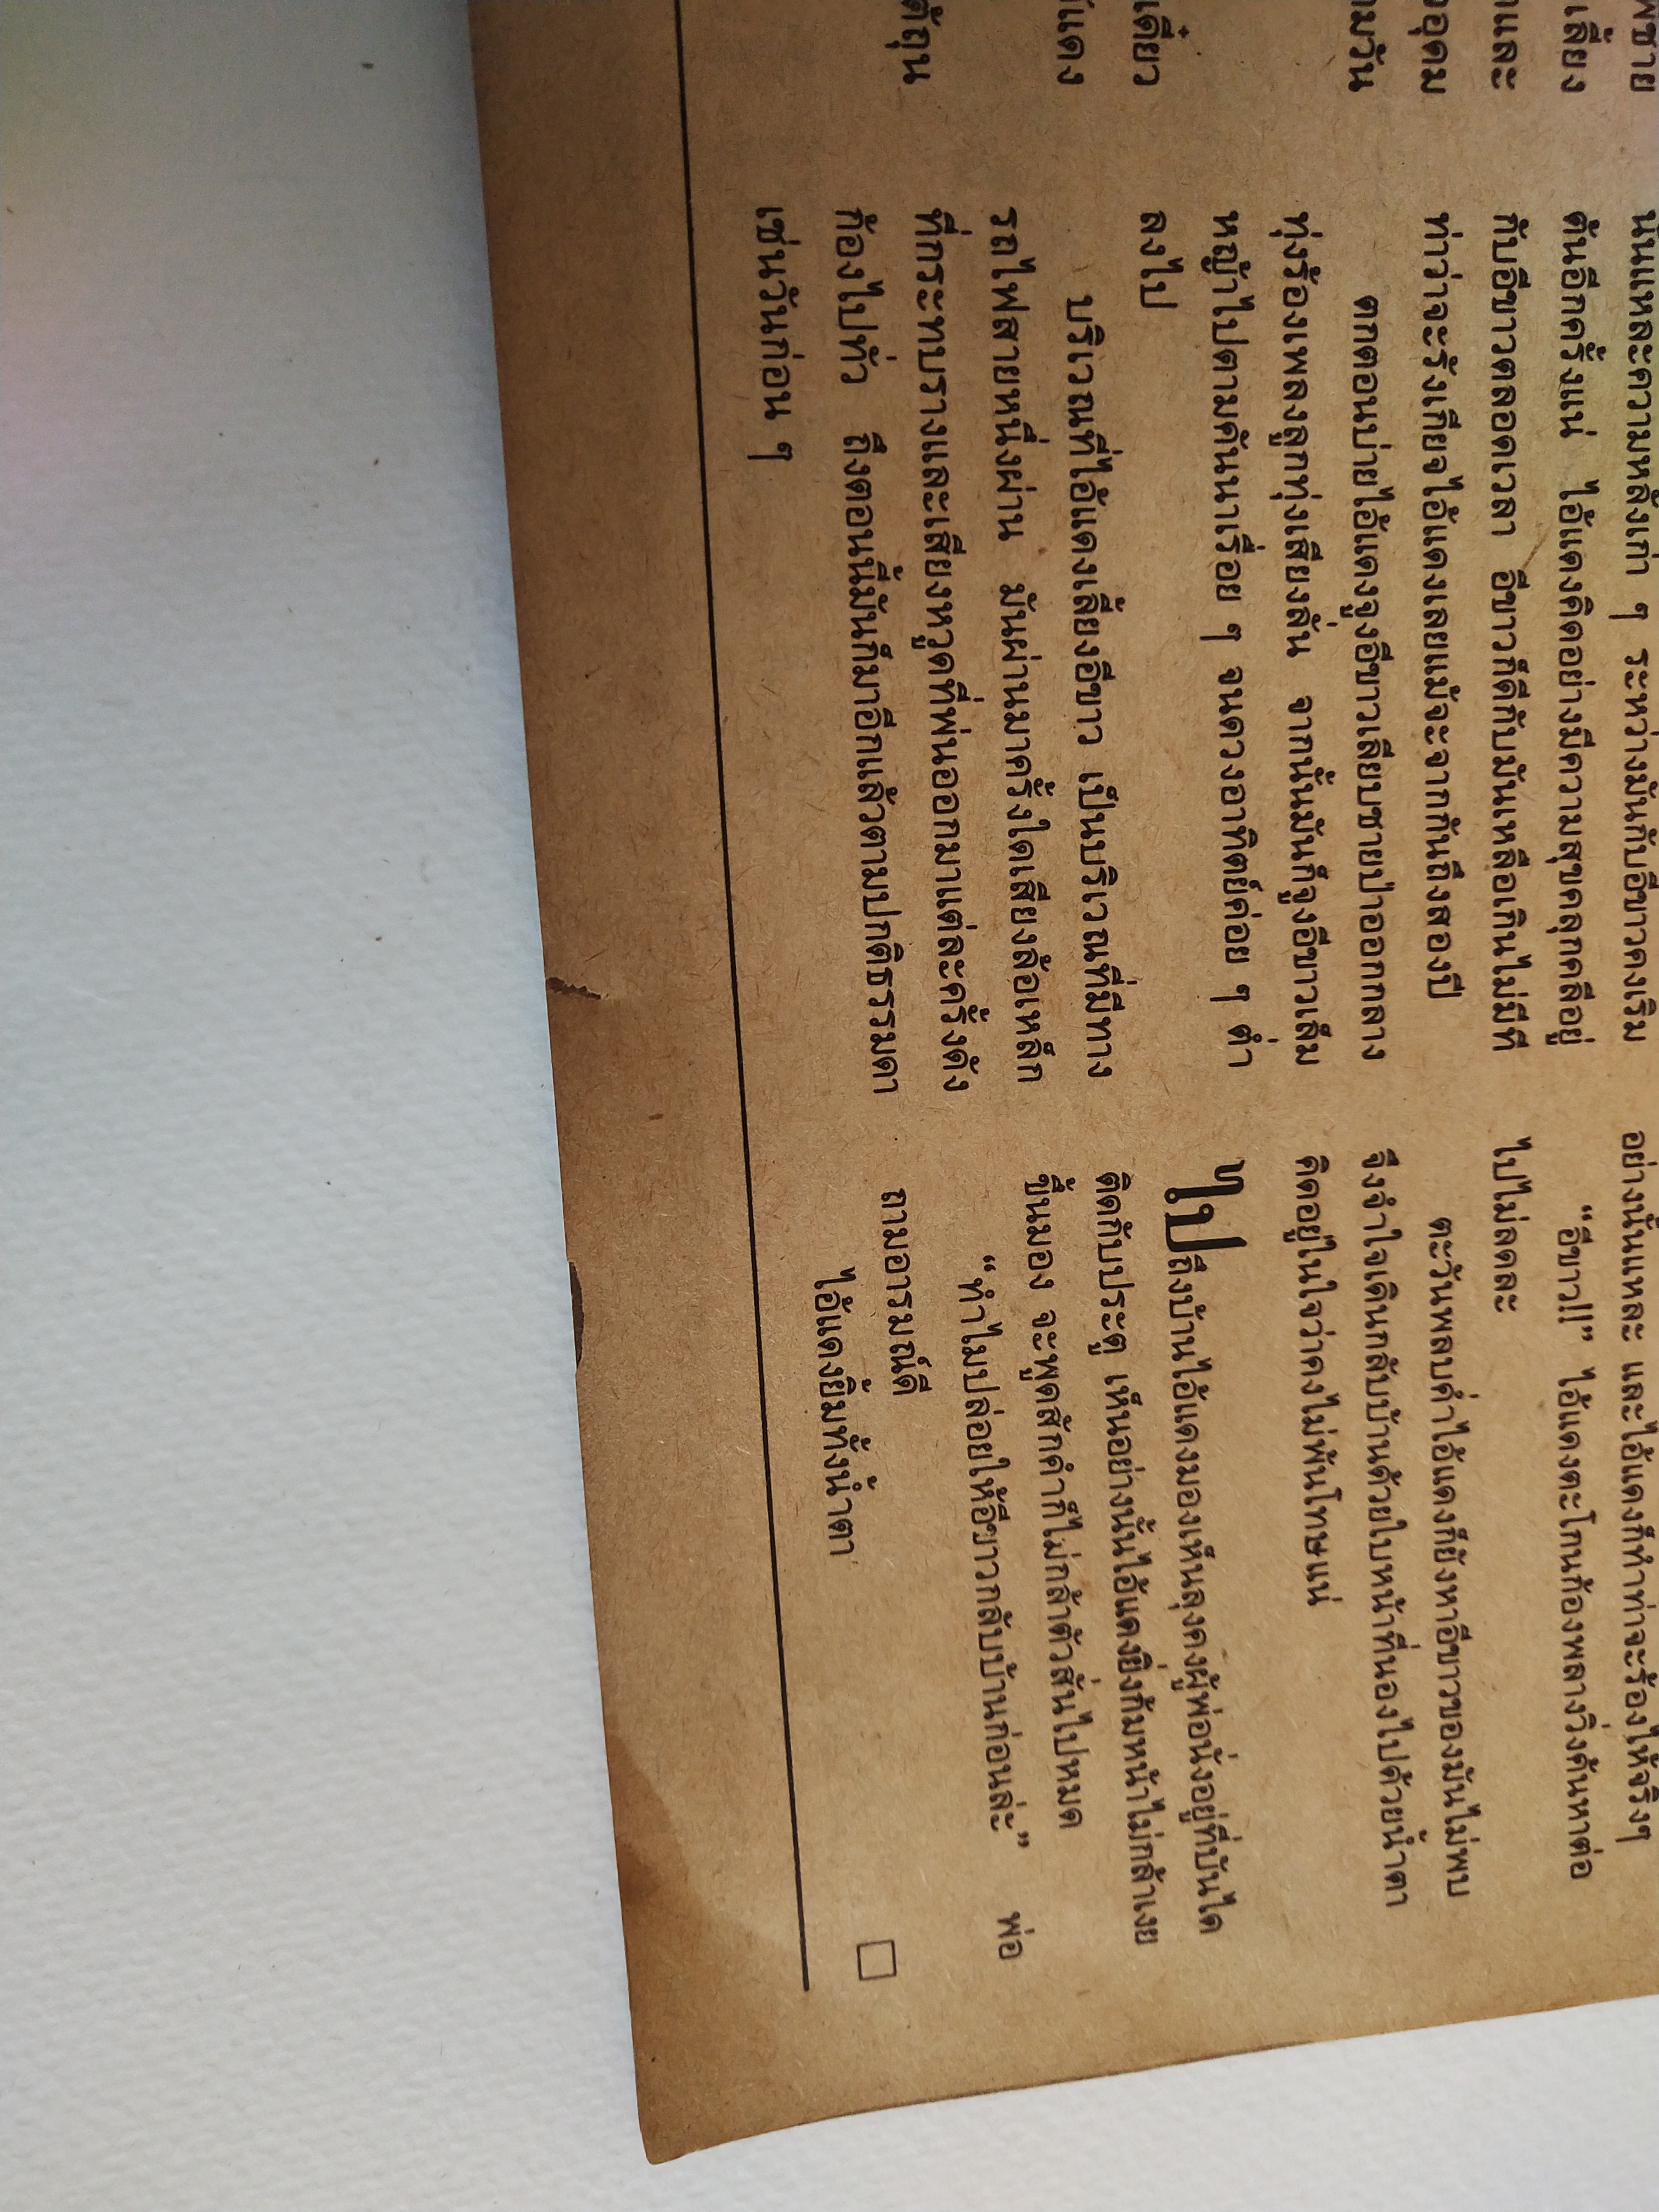 พชาย
เลี้ยง
และ
อุดม
มวัน
เดี๋ยว
แดง
ตัถุน
นั่นแหละความหลังเก่า ๆ ระหว่างมันกับอีขาวคงเริ่ม
ต้นอีกครั้งแน่ ไอ้แดงคิดอย่างมีความสุขคลุกคลีอยู่
กับอีขาวตลอดเวลา อีขาวก็ดีกับมันเหลือเกินไม่มีที
ท่าว่าจะรังเกียจไอ้แดงเลยแม้จะจากกันถึงสองปี
ตกตอนบ่ายไอ้แดงจูงอีขาวเลียบชายป่าออกกลาง
ทุ่งร้องเพลงลูกทุ่งเสียงลั่น จากนั้นมันก็จูงอีขาวเล็ม
หญ้าไปตามคันนาเรื่อย ๆ จนดวงอาทิตย์ค่อย ๆ ต่ำ
ลงไป
บริเวณที่ไอ้แดงเลี้ยงอีขาว เป็นบริเวณที่มีทาง
รถไฟสายหนึ่งผ่าน มันผ่านมาครั้งใดเสียงล้อเหล็ก
ที่กระทบรางและเสียงหวูดที่พ่นออกมาแต่ละครั้งดัง
ก้องไปทั่ว ถึงตอนนี้มันก็มาอีกแล้วตามปกติธรรมดา
เช่นวันก่อน ๆ
อย่างนั้นแหละ และไอ้แดงก็ทำท่าจะร้องไห้จริงๆ
“อีขาว!!” ไอ้แดงตะโกนก้องพลางวิ่งค้นหาต่อ
ไปไม่ลดละ
ตะวันพลบค่ำไอ้แดงก็ยังหาอีขาวของมันไม่พบ
จึงจำใจเดินกลับบ้านด้วยใบหน้าที่นองไปด้วยน้ำตา
คิดอยู่ในใจว่าคงไม่พ้นโทษแน่
ไปถึงบ้านไอ้แดงมองเห็นลุงคงผู้พ่อนั่งอยู่ที่บันได
ติดกับประตู เห็นอย่างนั้นไอ้แดงยิ่งก้มหน้าไม่กล้าเงย
ขึ้นมอง จะพูดสักคำก็ไม่กล้าตัวสั่นไปหมด
“ทำไมปล่อยให้อีขาวกลับบ้านก่อนล่ะ” พ่อ
ถามอารมณ์ดี
ไอ้แดงยิ้มทั้งน้ำตา